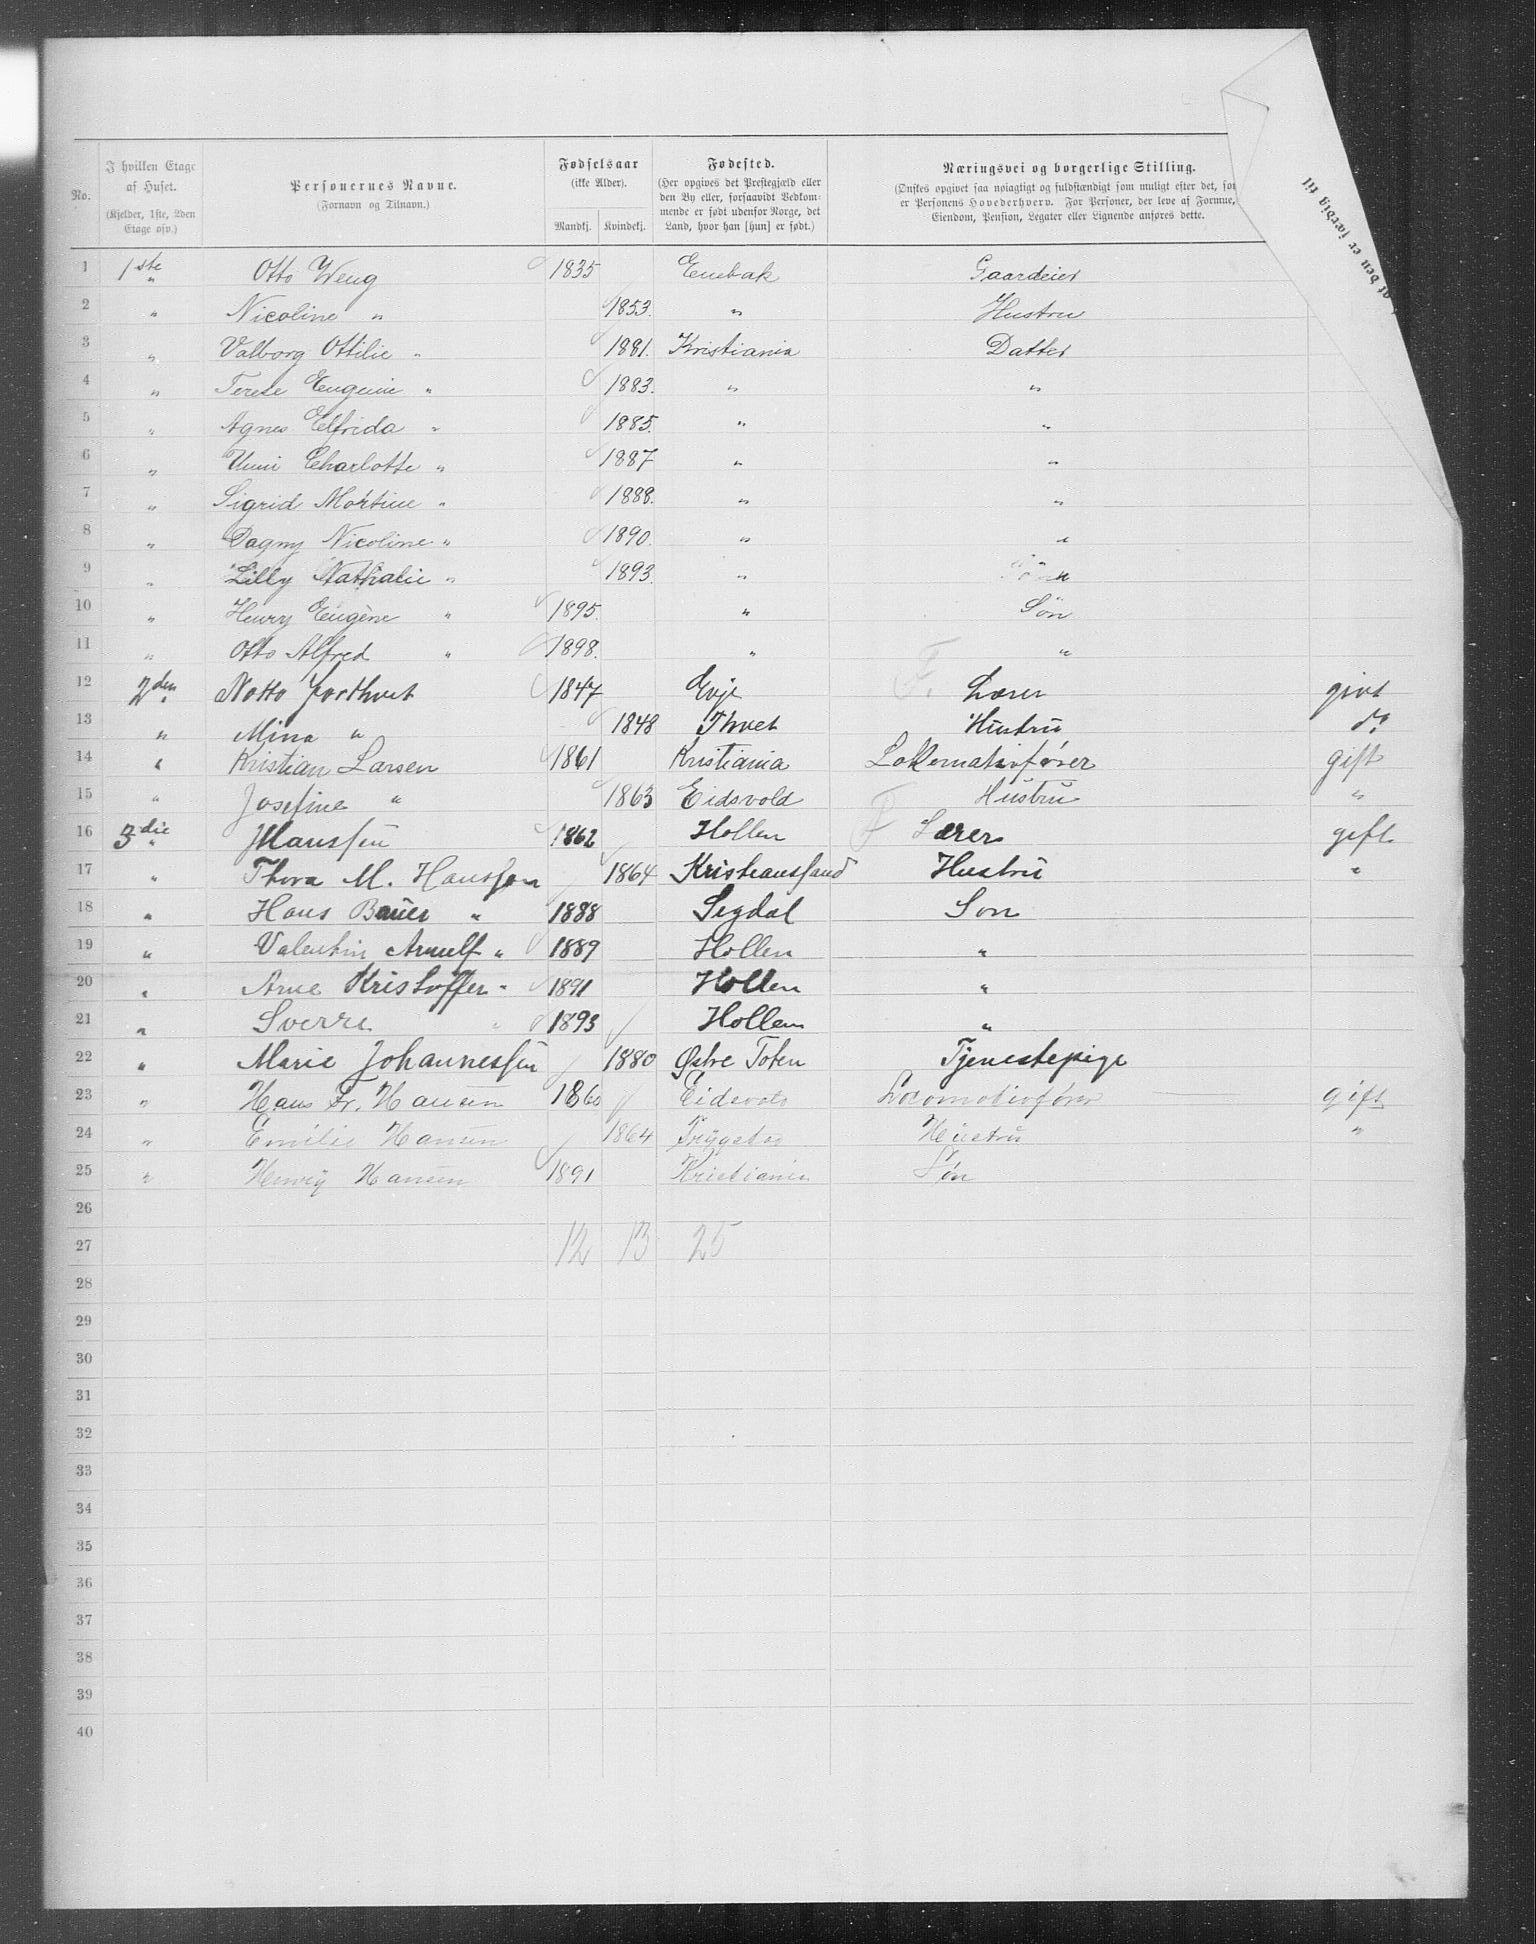 No.
I hvilken Etage af Huset.
(Kjelder, 1ste, 2den Etage osv.)
Personernes Navne.
(Fornavn og Tilnavn.)
Fødselsaar
(ikke Alder).
Mandkj. Kvindekj.
Fødested.
(Her opgives det Prestegjæld eller
den By eller, forsaavidt Vedkom-
mende er født udenfor Norge, det
Land, hvor han [hun] er født.)
Næringsvei og borgerlige Stilling.
(Ønskes opgivet saa nøiagtigt og fuldstændigt som muligt efter det, so
er Personens Hovederhverv. For Personer, der leve af Formue,
Eiendom, Pension, Legater eller Lignende anføres dette.
at den er færdig til
1 1ste " Otto Weng 1835 Enebak Gaardeier
2 " Nicoline " 1853. " Hustru
3 " Valborg Ottilie " 1881. Kristiania Datter
4 " Terese Eugenie " 1883. " "
5 " Agnes Elfrida " 1885. " "
6 " Unni Charlotte " 1887 " "
7 " Sigrid Mortine " 1888. " "
8 " Dagny Nicoline " 1890. " "
9 " Lilly Nathalie " 1893. "
10 " Henry Eugène " 1895. " Søn
11 " Otto Alfred " 1898. " "
12 2den " Notto Jorthvet 1847 Evje F. Lærer givt
13 " Mina " 1848 Thvet Hustru do
14 " Kristian Larsen 1861 Kristiania Lokomotivfører gift
15 " Josefine " 1863 Eidsvold Hustru "
16 3die " J Hanssen 1862 Hollen F Lærer gift
17 " Thora M. Hanssen 1864 Kristianssand Hustru "
18 " Hans Bauer " 1888 Segdal Søn
19 " Valentin Arnulf " 1889 Hollen "
20 " Arne Kristoffer " 1891 Hollen "
21 " Sverre " 1893 Hollen "
22 " Marie Johannessen 1880 Østre Toten Tjenestepige
23 " Hans Fr. Hansen 1860 Eidsvold Locomotivfører gift
24 " Emilie Hansen 1864 Trygstad Hustru "
25 " Hansen 1891 Kristiania Søn
26
27 12 13 25
28
29
30
31
32
33
34
35
36
37
38
39
40